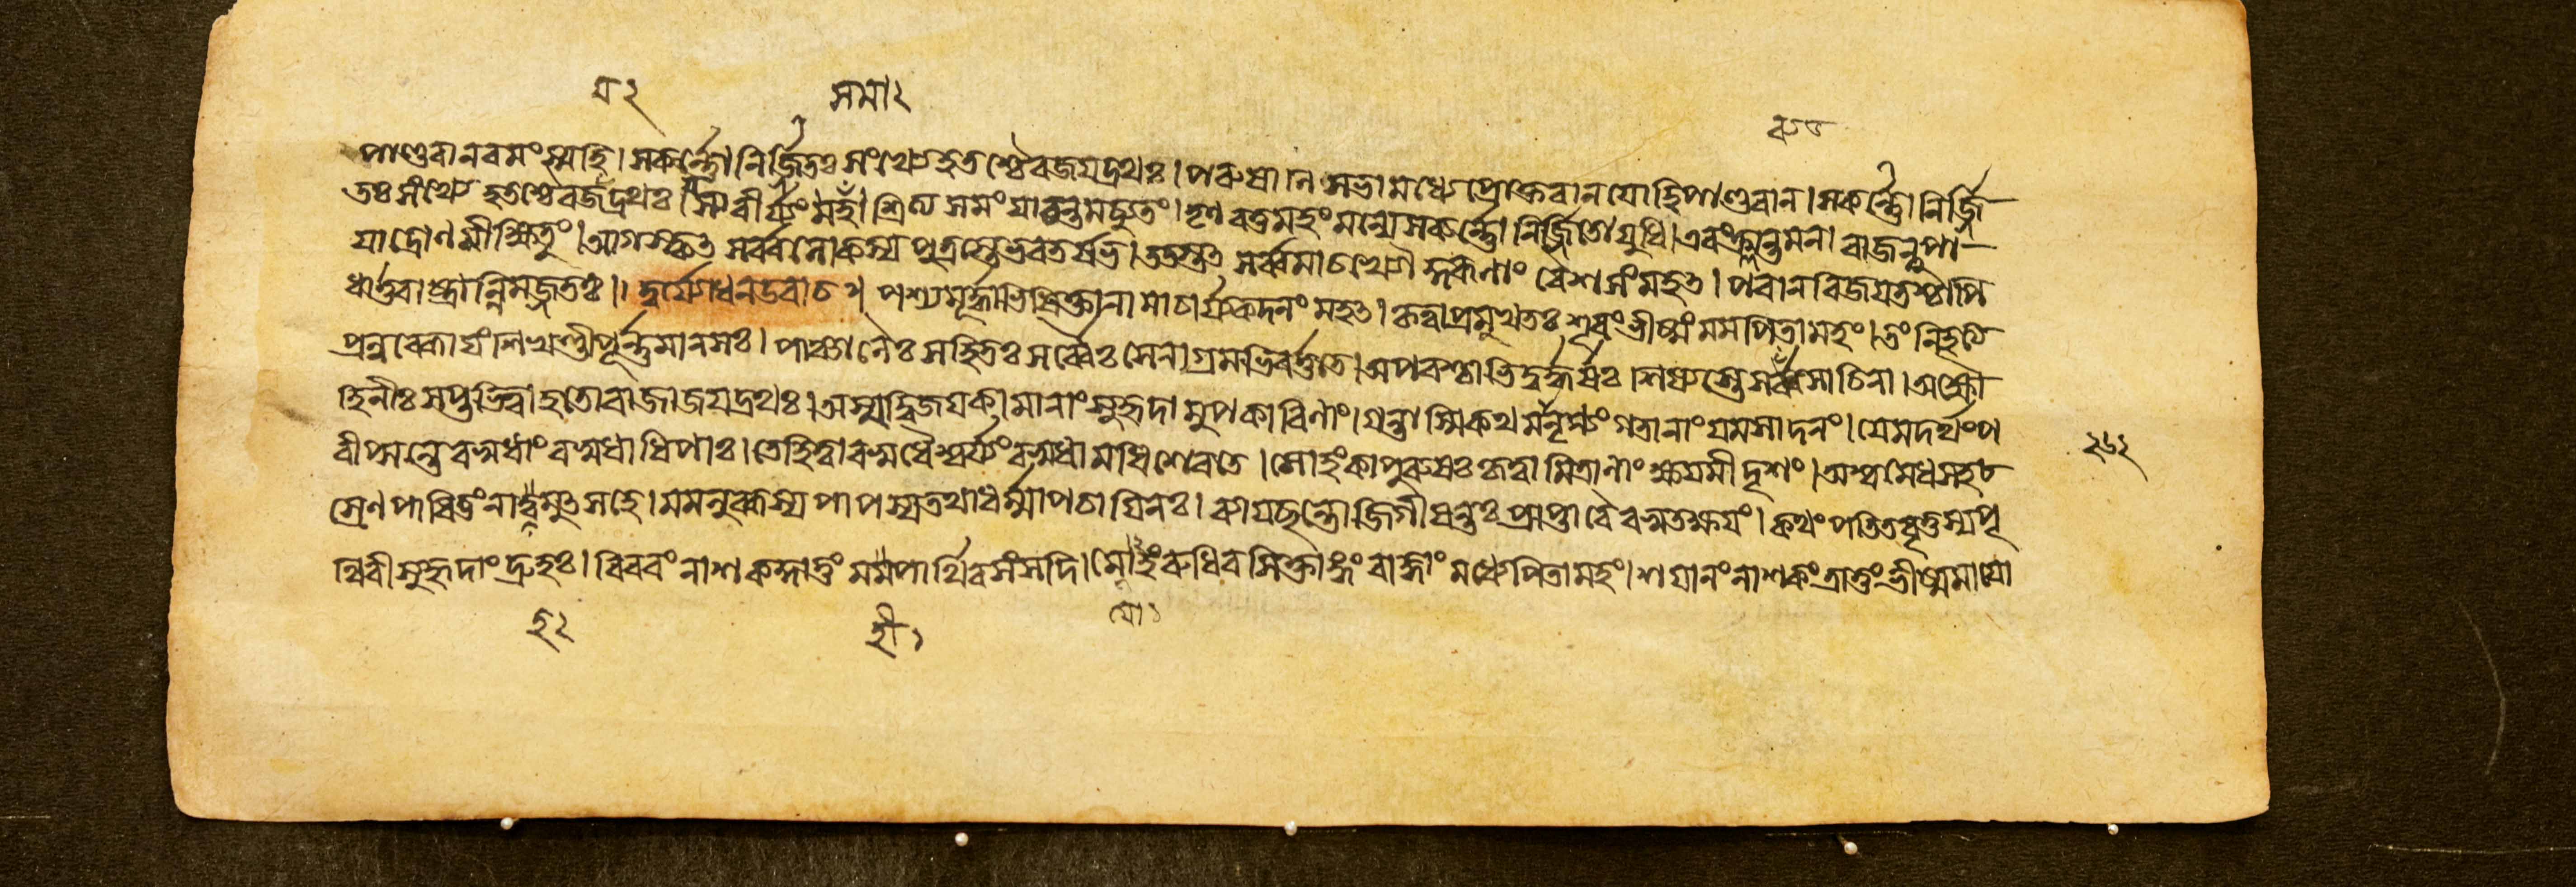 য ২ সমা ২
পাণ্ডবানবমংস্যাহি। সকর্ন্নো নির্জ্জিতঃ সংখ্যে হতশ্চৈবজয়দ্রথঃ। পরুষাণি সভামধ্যে প্রোক্তবানযোহিপাণ্ডবান। সকর্ন্নো নির্জ্জি
তঃ সংখ্যে হতশ্চৈবজদ্রথঃ। বীর্য্যং শ্রিত্য সমং যাচন্তমচ্যুতং। তৃণবত্তমহং মন্যে সকর্ন্নো নির্জ্জিতো যুধি। এবংক্লান্তমনা রাজন্নুপা
যাদ্রোণমীক্ষিতুং। আগস্কৃত সর্ব্বলোকস্য পুত্রস্তেভরতর্ষভ। ততস্তত সর্ব্বমাচখ্যৌ কুরূণাং বৈশসংমহত। পরানবিজয়তশ্চাপি
ধার্ত্তরাষ্ট্রান্নিমজ্জতঃ।। দুর্যোধনউবাচ। পশ্যমূর্দ্ধাভিষিক্তানামাচার্য্যকদনং মহত। কৃত্বাপ্রমুখতঃ শূরংভীষ্মং মমপিতামহং। তংনিহত্যে
প্রলুব্ধোয়ংশিখণ্ডীপূর্ন্নমানসঃ। পাঞ্চালৈঃ সহিতঃ সর্ব্বৈঃ সেনাগ্রমভিবর্ত্ততে। অপরশ্চাতিদুর্দ্ধর্ষঃ। শিষ্যস্তেসব্যসাচিনা। অক্ষৌ
হিনীঃ সপ্তহত্বা হতোরাজাজয়দ্রথঃ। অস্মদ্বিজয়কামানাং সুহৃদামুপকারিণাং। গন্তাস্মিকথমানৃণ্যং গতানাং যমসাদনং। যেমদর্থংপ
রীপ্সন্তেবসুধাং বসুধাধিপাঃ। তেহিত্বাবসুধৈশ্বর্য্যংবসুধামধিশেরতে। সোহংকাপুরুষঃ কৃত্বামিত্রাণাং ক্ষয়মীদৃশং। অশ্বমেধসহ
স্রেণপাবিতুংনাত্মমুৎসহে। মমলুব্ধস্যপাপস্যতথাধর্ম্মাপচায়িনঃ। ব্যায়ছন্তোজিগীষন্তঃ প্রাপ্তাবৈবস্বতক্ষয়ং। কথংপতিতবৃত্তস্যপৃ
থিবীসুহৃদাংদ্রুহঃ। বিবরংনাশকদ্দাতুং মমপার্থিবসংসদি। সোহংরুধিরসিক্তাঙ্গংরাজ্ঞাং মধ্যেপিতামহং। শয়ানংনাশকংত্রাতুংভীষ্মমায়ো
হ ২